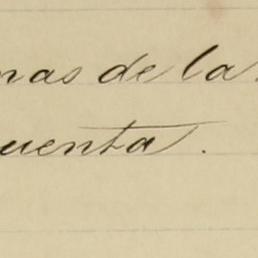 mas de la
uenta.